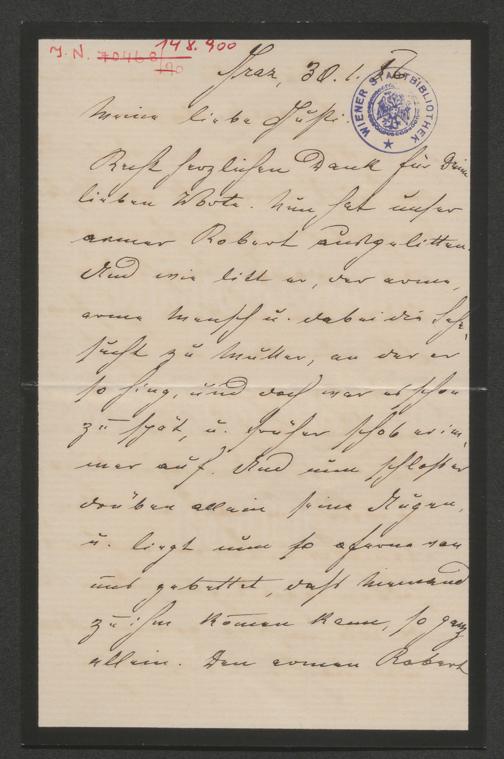 J. N. 70468/90 148.900
Graz, 30.1.
WIENER STADTBIBLIOTHEK
Meine liebe Gusti!
Recht herzlichen Dank für Deine
lieben Worte. Nun hat unser
armer Robert ausgelitten.
Und wie litt er, der arme,
arme Mensch u. dabei die Sehn¬
sucht zu Mutter, an der er
so hing, und doch war es schon
zu spät, u. früher schob er im¬
mer auf. Und nun schloß er
drüben allein seine Augen,
u. liegt nun so ferne von
uns gebettet, daß Niemand
zu ihm kom̄en kann, so ganz
allein. Den armen Robert